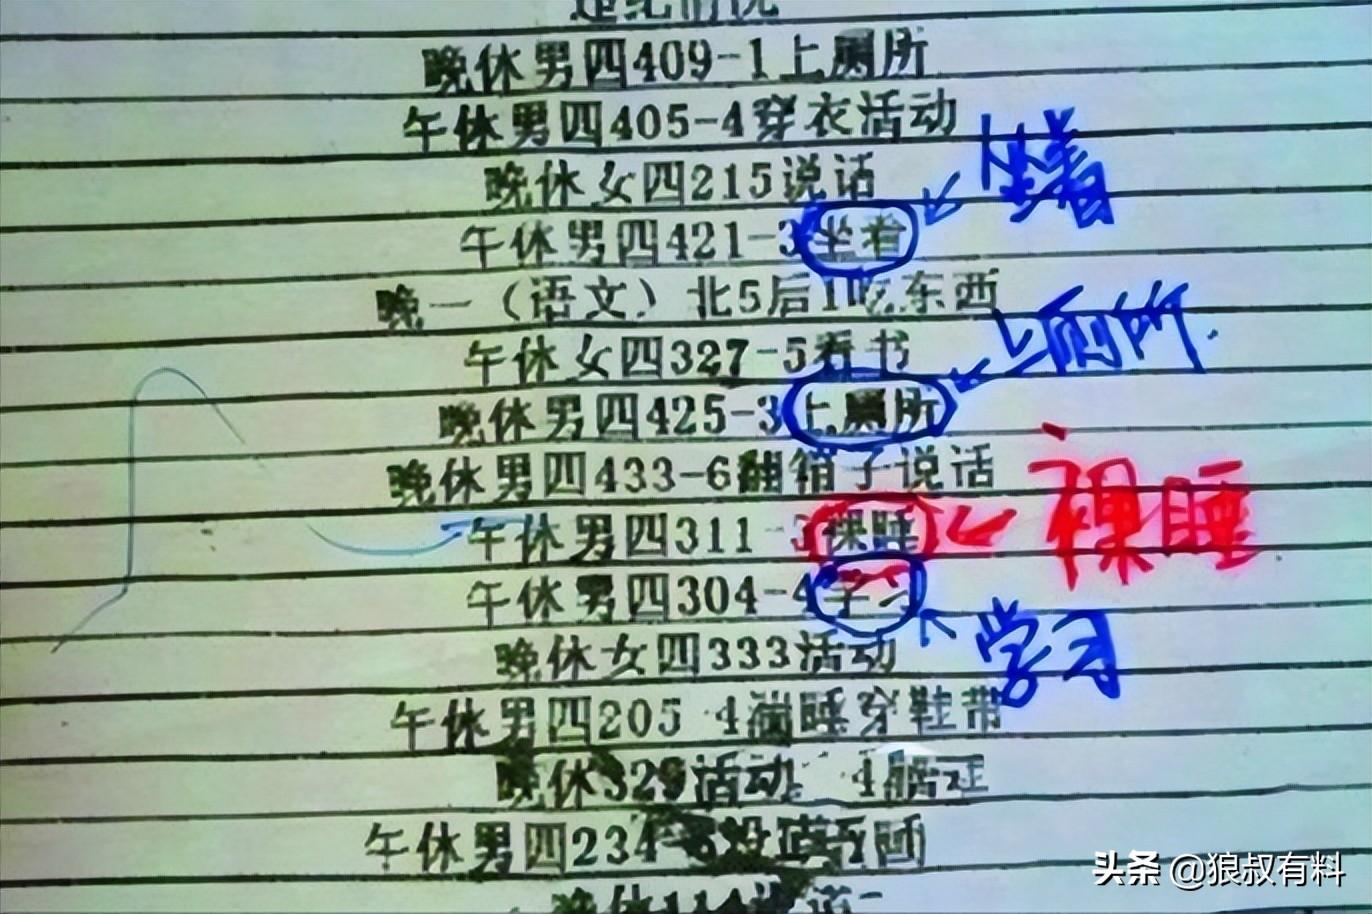 违纪情况
晚休男四409-1上厕所
午休男四405-4穿衣活动
晚休女四215说话
坐着
午休男四421-3坐着
晚一（语文）北5后1吃东西
上厕所.
午休女四327-5看书
晚休男四425-3上厕所
晚休男四433-6翻箱子说话
裸睡
午休男四311-3裸睡
午休男四304-4学习
学习
晚休女四333活动
午休男四205 4 睡穿鞋带
晚休329活动 4
午休男四234
晚休114
头条 @狼叔有料